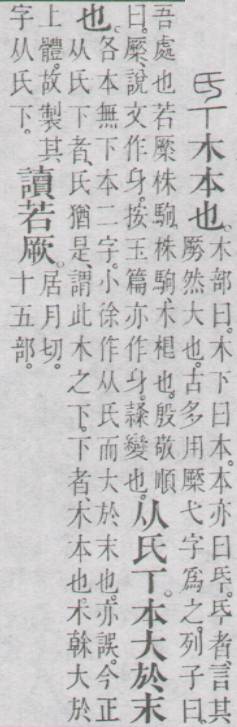 氒木本也。木部曰。木下曰本。本亦曰氒。氒者、言其
厥然大也。古多用橜弋字爲之。列子曰。
吾處也若橜株駒。株駒、木根也。殷敬順
曰。橜、說文作身。按玉篇亦作身。隸變也。从氏丅。本大於末
也。各本無下本二字。小徐作从氏而大於末也。亦誤。今正
从氏下者、氏猶是。謂此木之下。下者、木本也。木榦大於
上體。故製其
字从氏下。讀若厥。居月切。十五部。